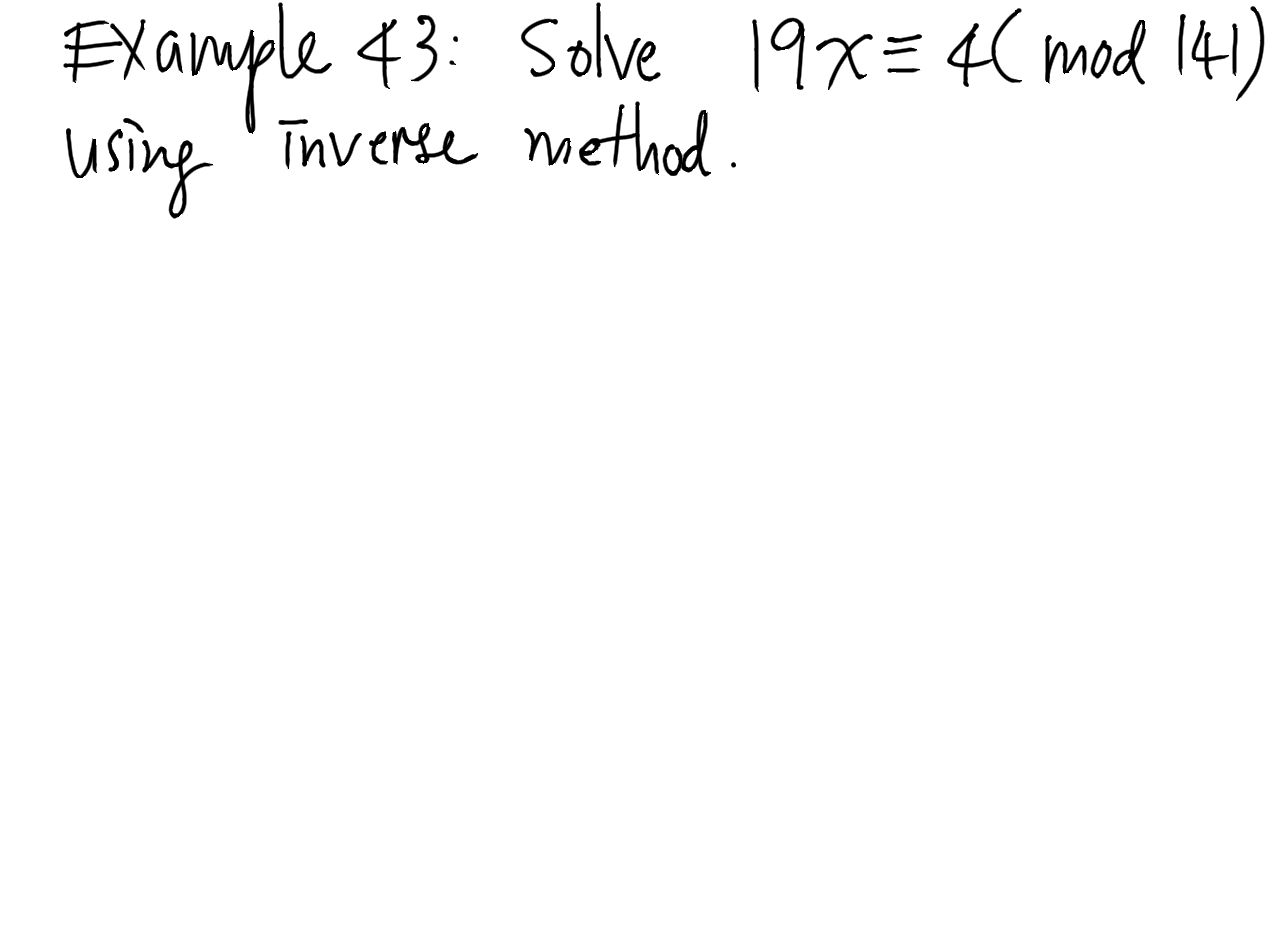 Example 43: Solve 19x ≡ 4( mod 141)
using inverse method.